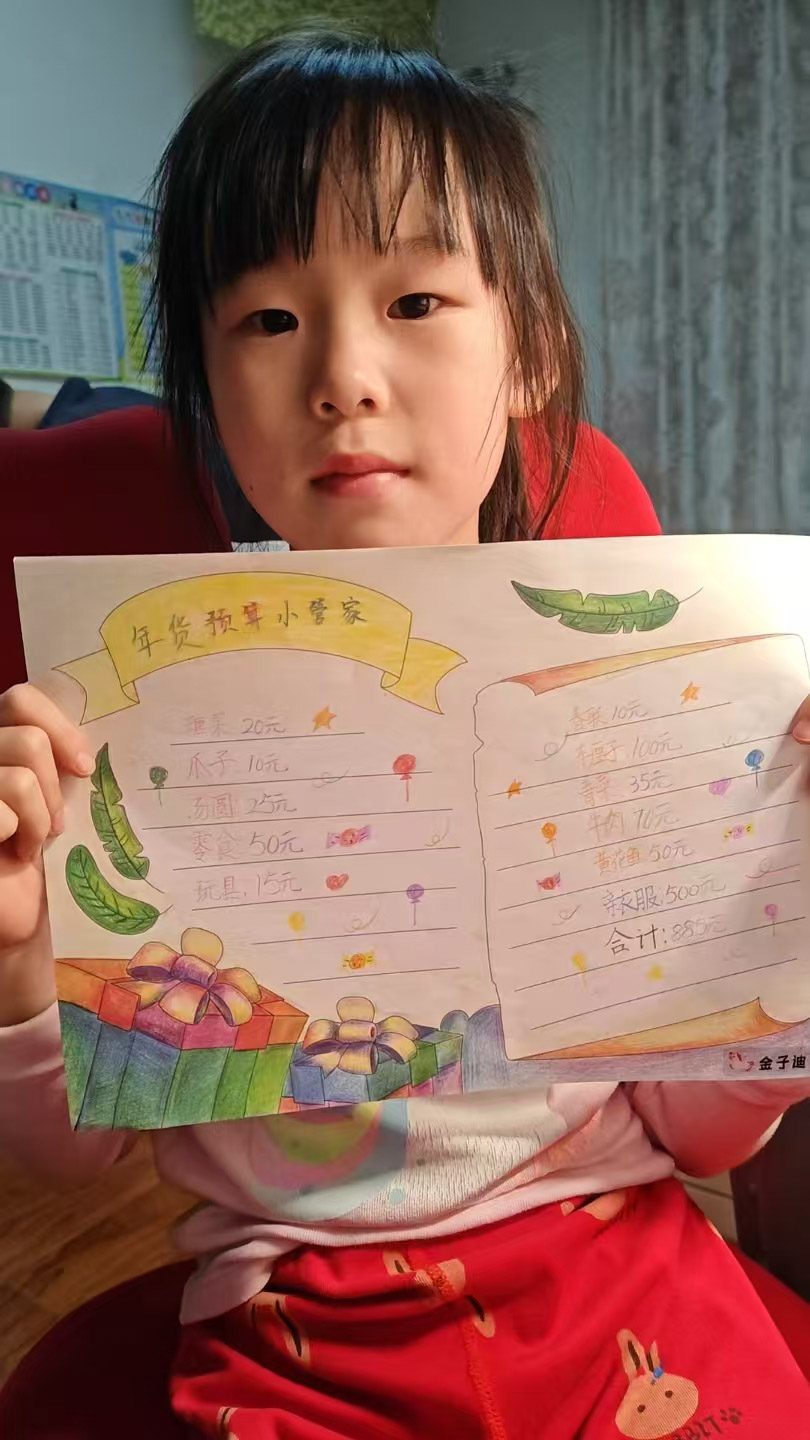 年货预算小管家
糖果 20元
爪子 10元
汤圆 25元
零食 50元
玩具 15元
春联 10元
车厘子 100元
青菜 35元
牛肉 70元
黄花鱼 50元
亲衣服 500元
合计:885元
金子迪